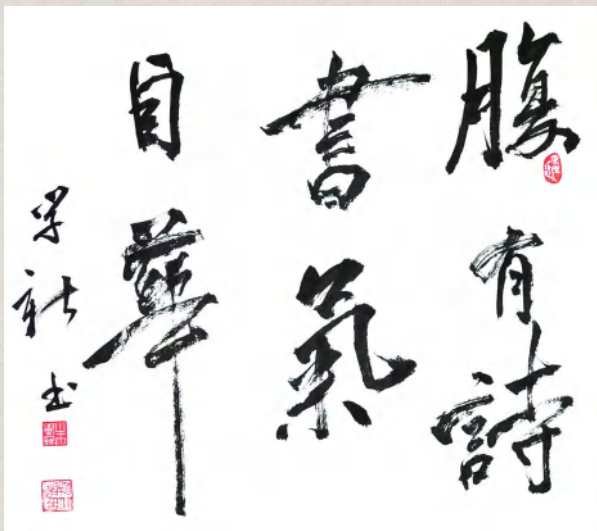 腹有詩
書氣
自華
学新书